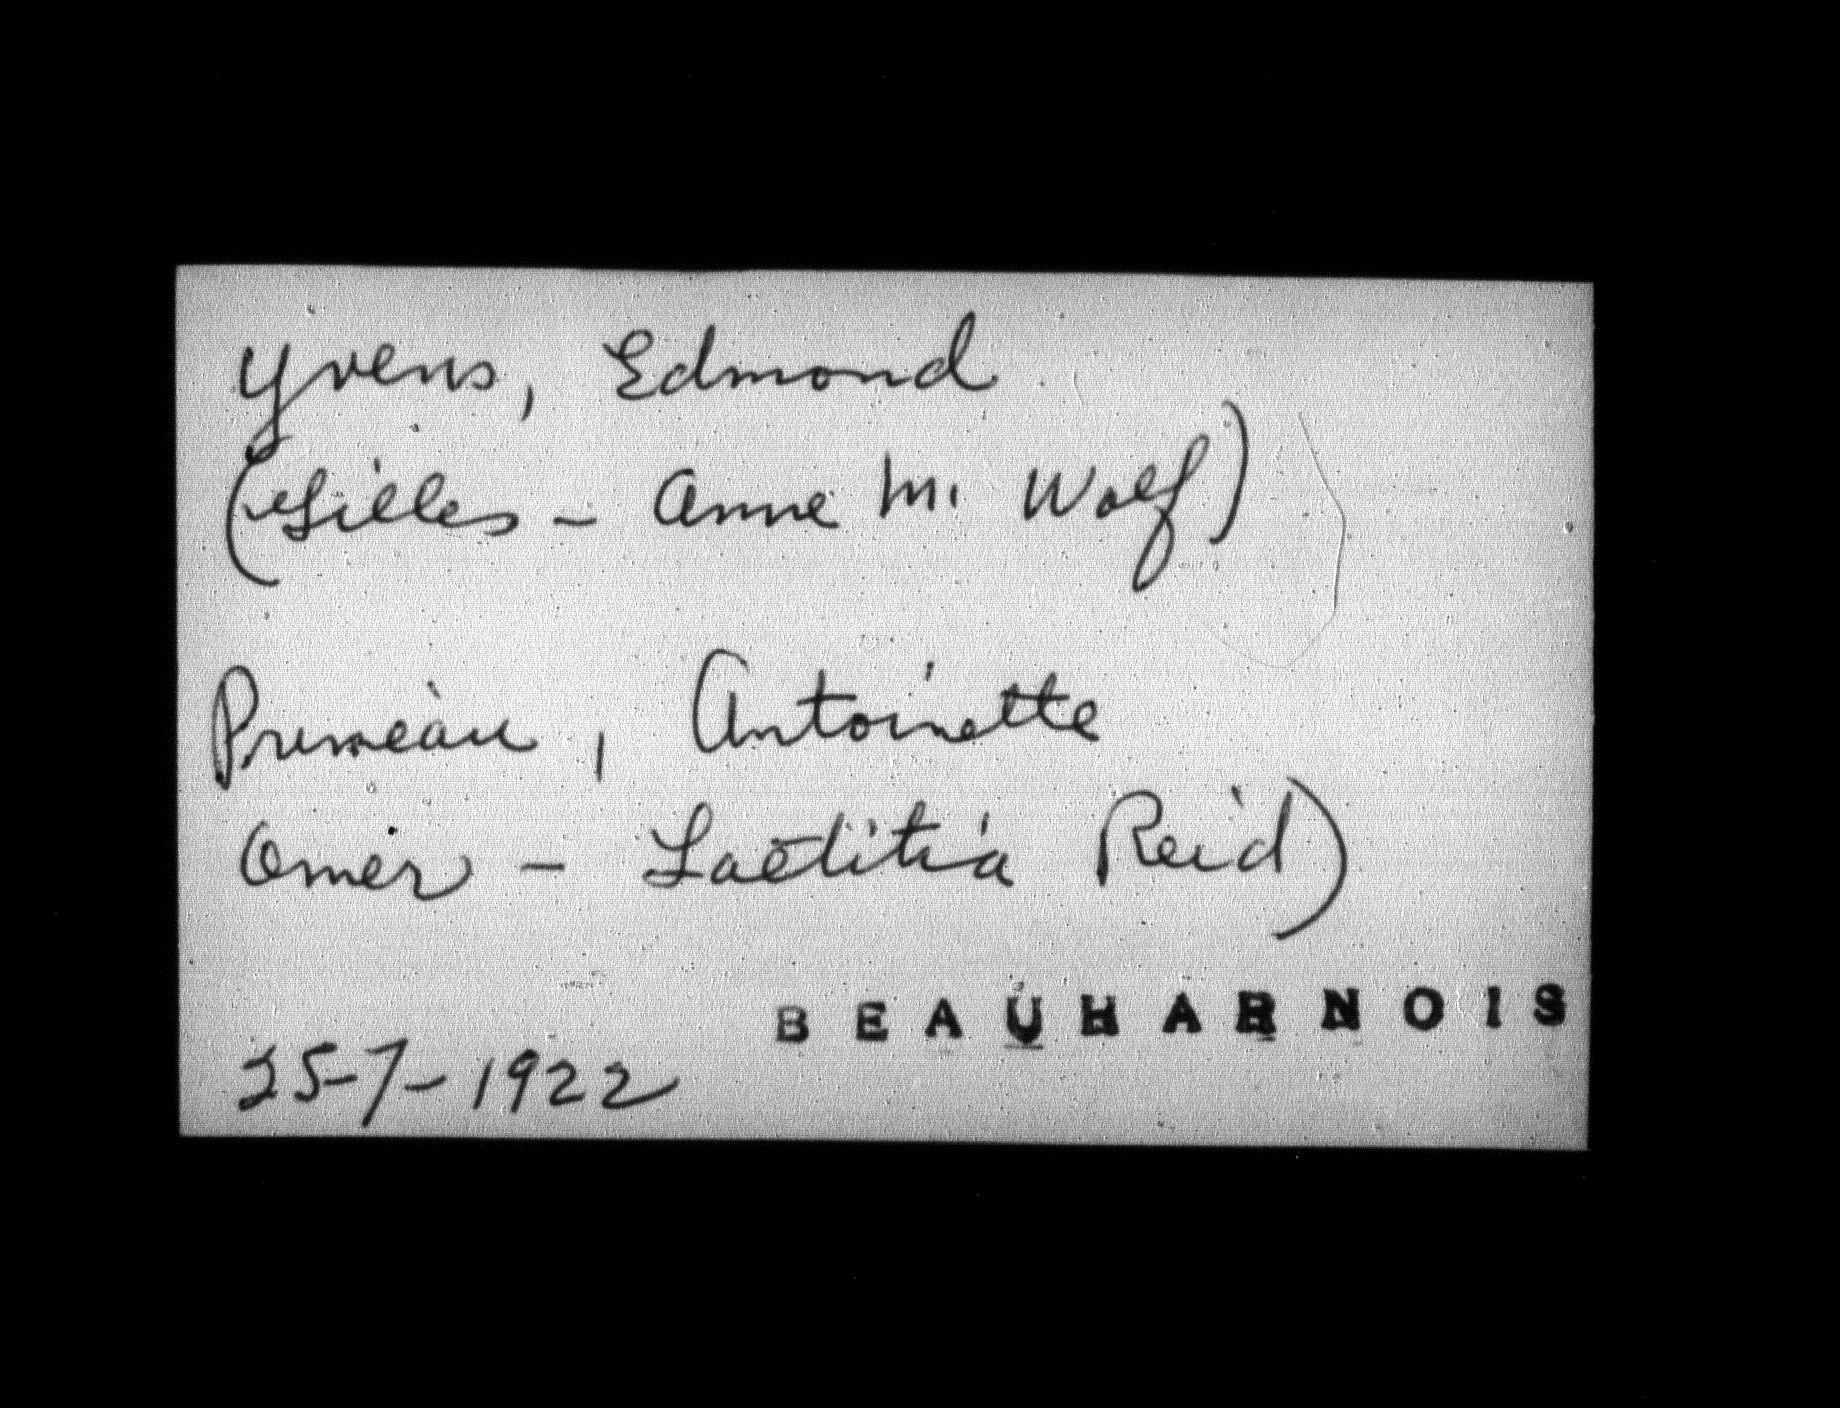 Yvens, Edmond
(Gilles - Anne M. Wolf)
Primeau, Antoinette
Omer - Laëtitia Reid)
BEAUHARNOIS
25-7-1922